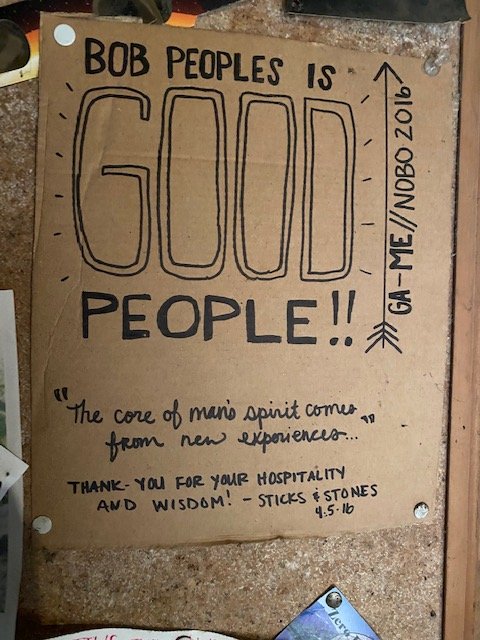 BOB PEOPLES IS
GOOD
PEOPLE!!
GA-ME//NOBO 2016
"The core of man's spirit comes
from new experiences..."
THANK-YOU FOR YOUR HOSPITALITY
AND WISDOM! - STICKS & STONES
4.5.16
Zero